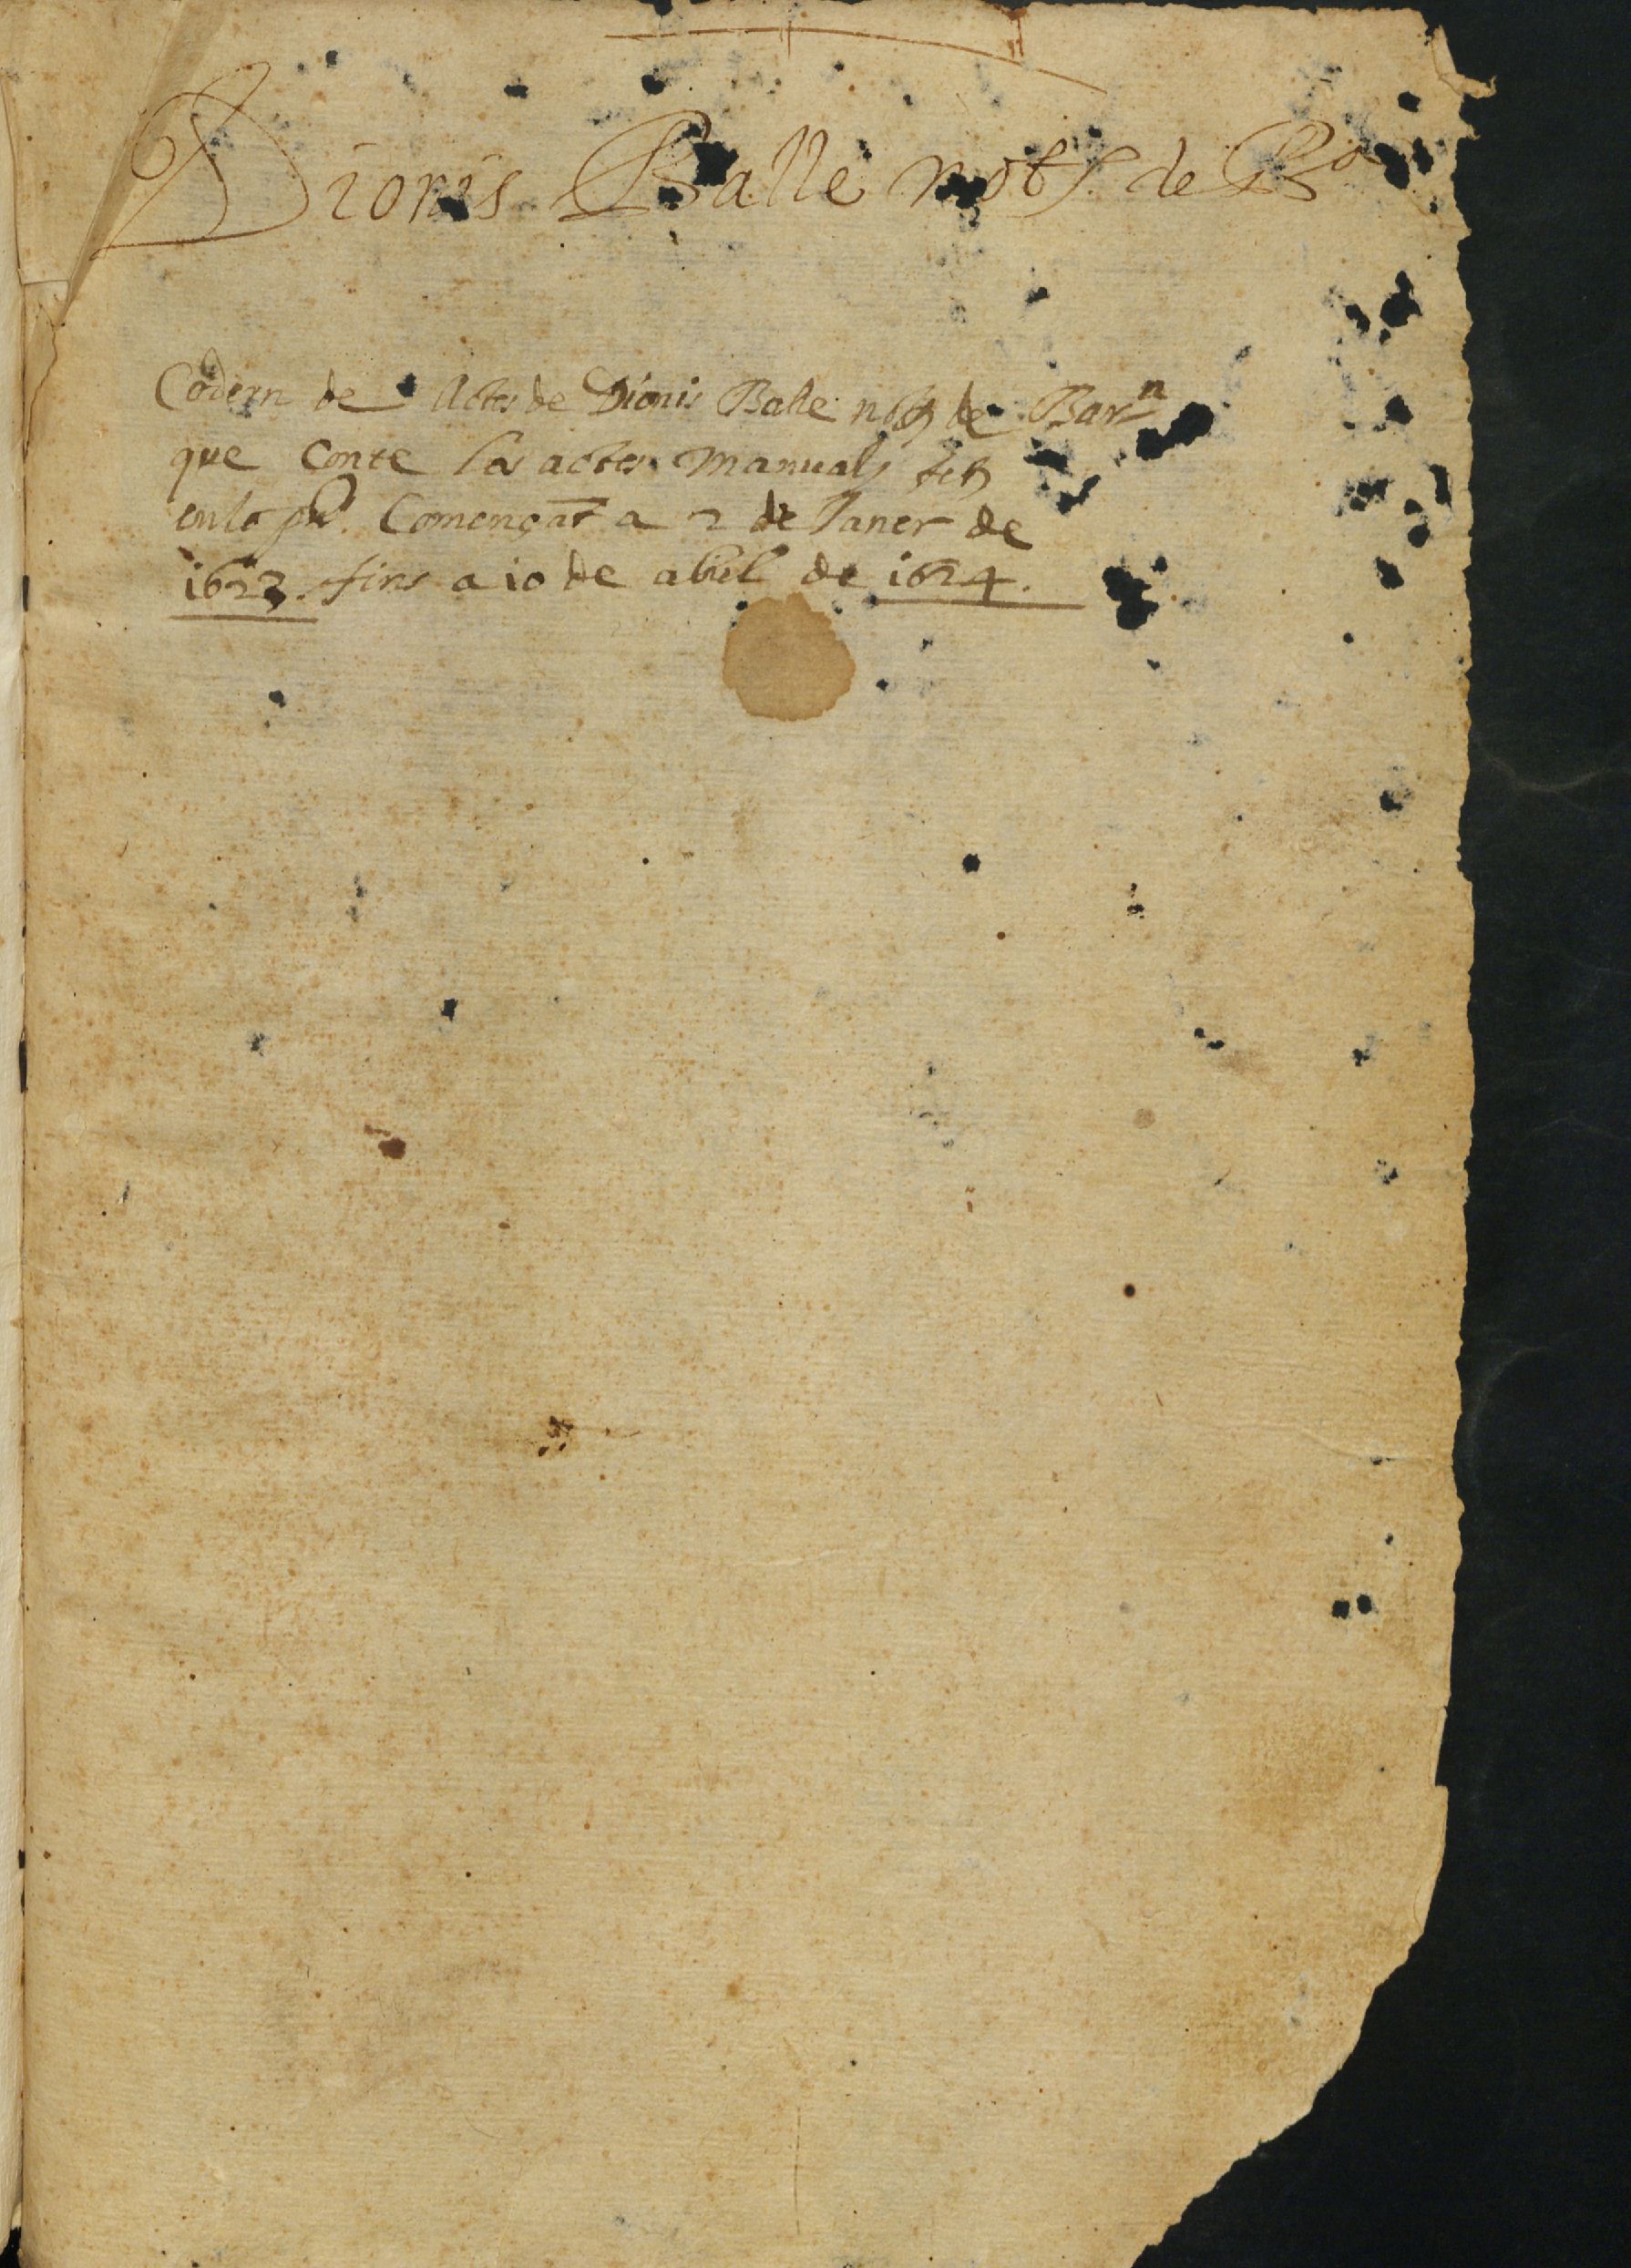 Dionis Balle not. de Ba
Codern de Actes de Dionis Balle not. de Barn
que conte los actes manuals fets
en lo pnt. Començat a 2 de Janer de
1623. fins a 10 de abril de 1624.